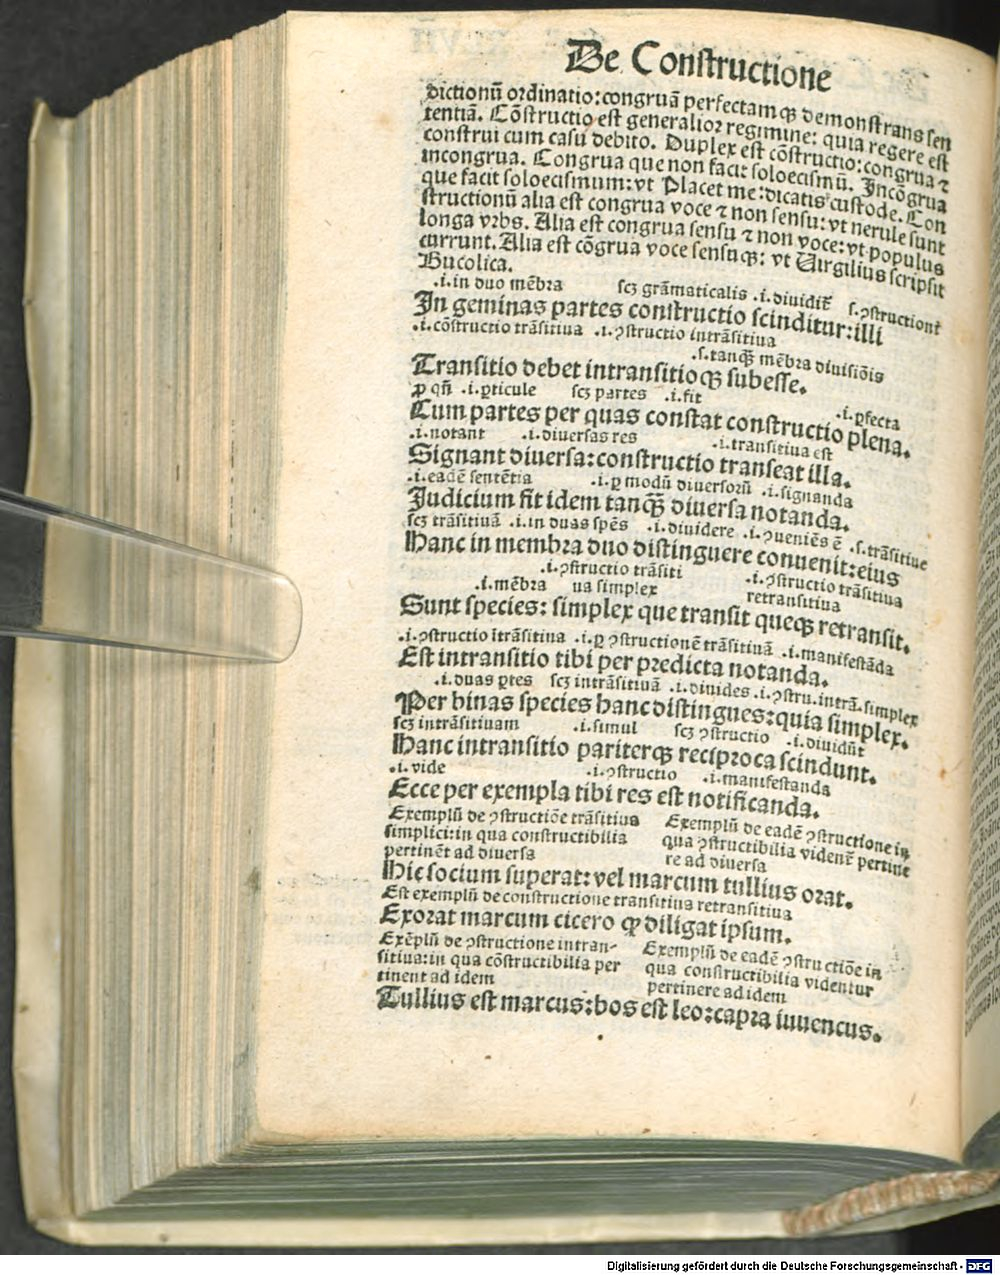 De Constructione
dictionũ ordinatio: congruã perfectamqꝫ demonstrans sen
tentiã. Cõstructio est generalior regimine: quia regere est
construi cum casu debito. Duplex est cõstructio: congrua ⁊
incongrua. Congrua que non facit soloecismũ. Incõgrua
que facit soloecismum: vt Placet me: dicatis custode. Con
structionũ alia est congrua voce ⁊ non sensu: vt nerule sunt
longa vrbs. Alia est congrua sensu ⁊ non voce: vt populus
currunt. Alia est cõgrua voce sensuqꝫ: vt Virgilius scripsit
Bucolica.
.i. in duo mẽbra scꝫ grãmaticalis .i. diuidit̃ s. ꝯstructioni
In geminas partes constructio scinditur: illi
.i. cõstructio trãsitiua .i. ꝯstructio intrãsitiua
.s. tanqꝫ mẽbra diuisiõis
Transitio debet intransitioqꝫ subesse.
ꝓ qñ .i. ꝑticule scꝫ partes .i. fit .i. ꝑfecta
Cum partes per quas constat constructio plena.
.i. notant .i. diuersas res .i. transitiua est
Signant diuersa: constructio transeat illa.
.i. eadẽ sentẽtia .i. ꝑ modũ diuersorũ .i. signanda
Judicium fit idem tanqꝫ diuersa notanda.
scꝫ trãsitiuã .i. in duas spẽs .i. diuidere .i. ꝯueniẽs ẽ .s. trãsitiue
Hanc in membra duo distinguere conuenit: eius
.i. ꝯstructio trãsiti .i. ꝯstructio trãsitiua
.i. mẽbra ua simplex retransitiua
Sunt species: simplex que transit queqꝫ retransit.
.i. ꝯstructio ĩtrãsitiua .i. ꝑ ꝯstructionẽ trãsitiuã .i. manifestãda
Est intransitio tibi per predicta notanda.
.i. duas ꝑtes scꝫ intrãsitiuã .i. diuides .i. ꝯstru. intrã. simplex
Per binas species hanc distingues: quia simplex.
scꝫ intrãsitiuam .i. simul scꝫ ꝯstructio .i. diuidũt
Hanc intransitio pariterqꝫ reciproca scindunt.
.i. vide .i. ꝯstructio .i. manifestanda
Ecce per exempla tibi res est notificanda.
Exemplũ de ꝯstructiõe trãsitiua Exemplũ de eadẽ ꝯstructione in
simplici: in qua constructibilia qua ꝯstructibilia videnť pertine
pertinẽt ad diuersa re ad diuersa
Hic socium superat: vel marcum tullius orat.
Est exemplũ de constructione transitiua retransitiua
Exorat marcum cicero ꝙ diligat ipsum.
Exẽplũ de ꝯstructione intran- Exemplũ de eadẽ ꝯstructiõe in
sitiua: in qua cõstructibilia per qua constructibilia videntur
tinent ad idem pertinere ad idem
Tullius est marcus: bos est leo: capra iuuencus.
Digitalisierung gefördert durch die Deutsche Forschungsgemeinschaft - DFG